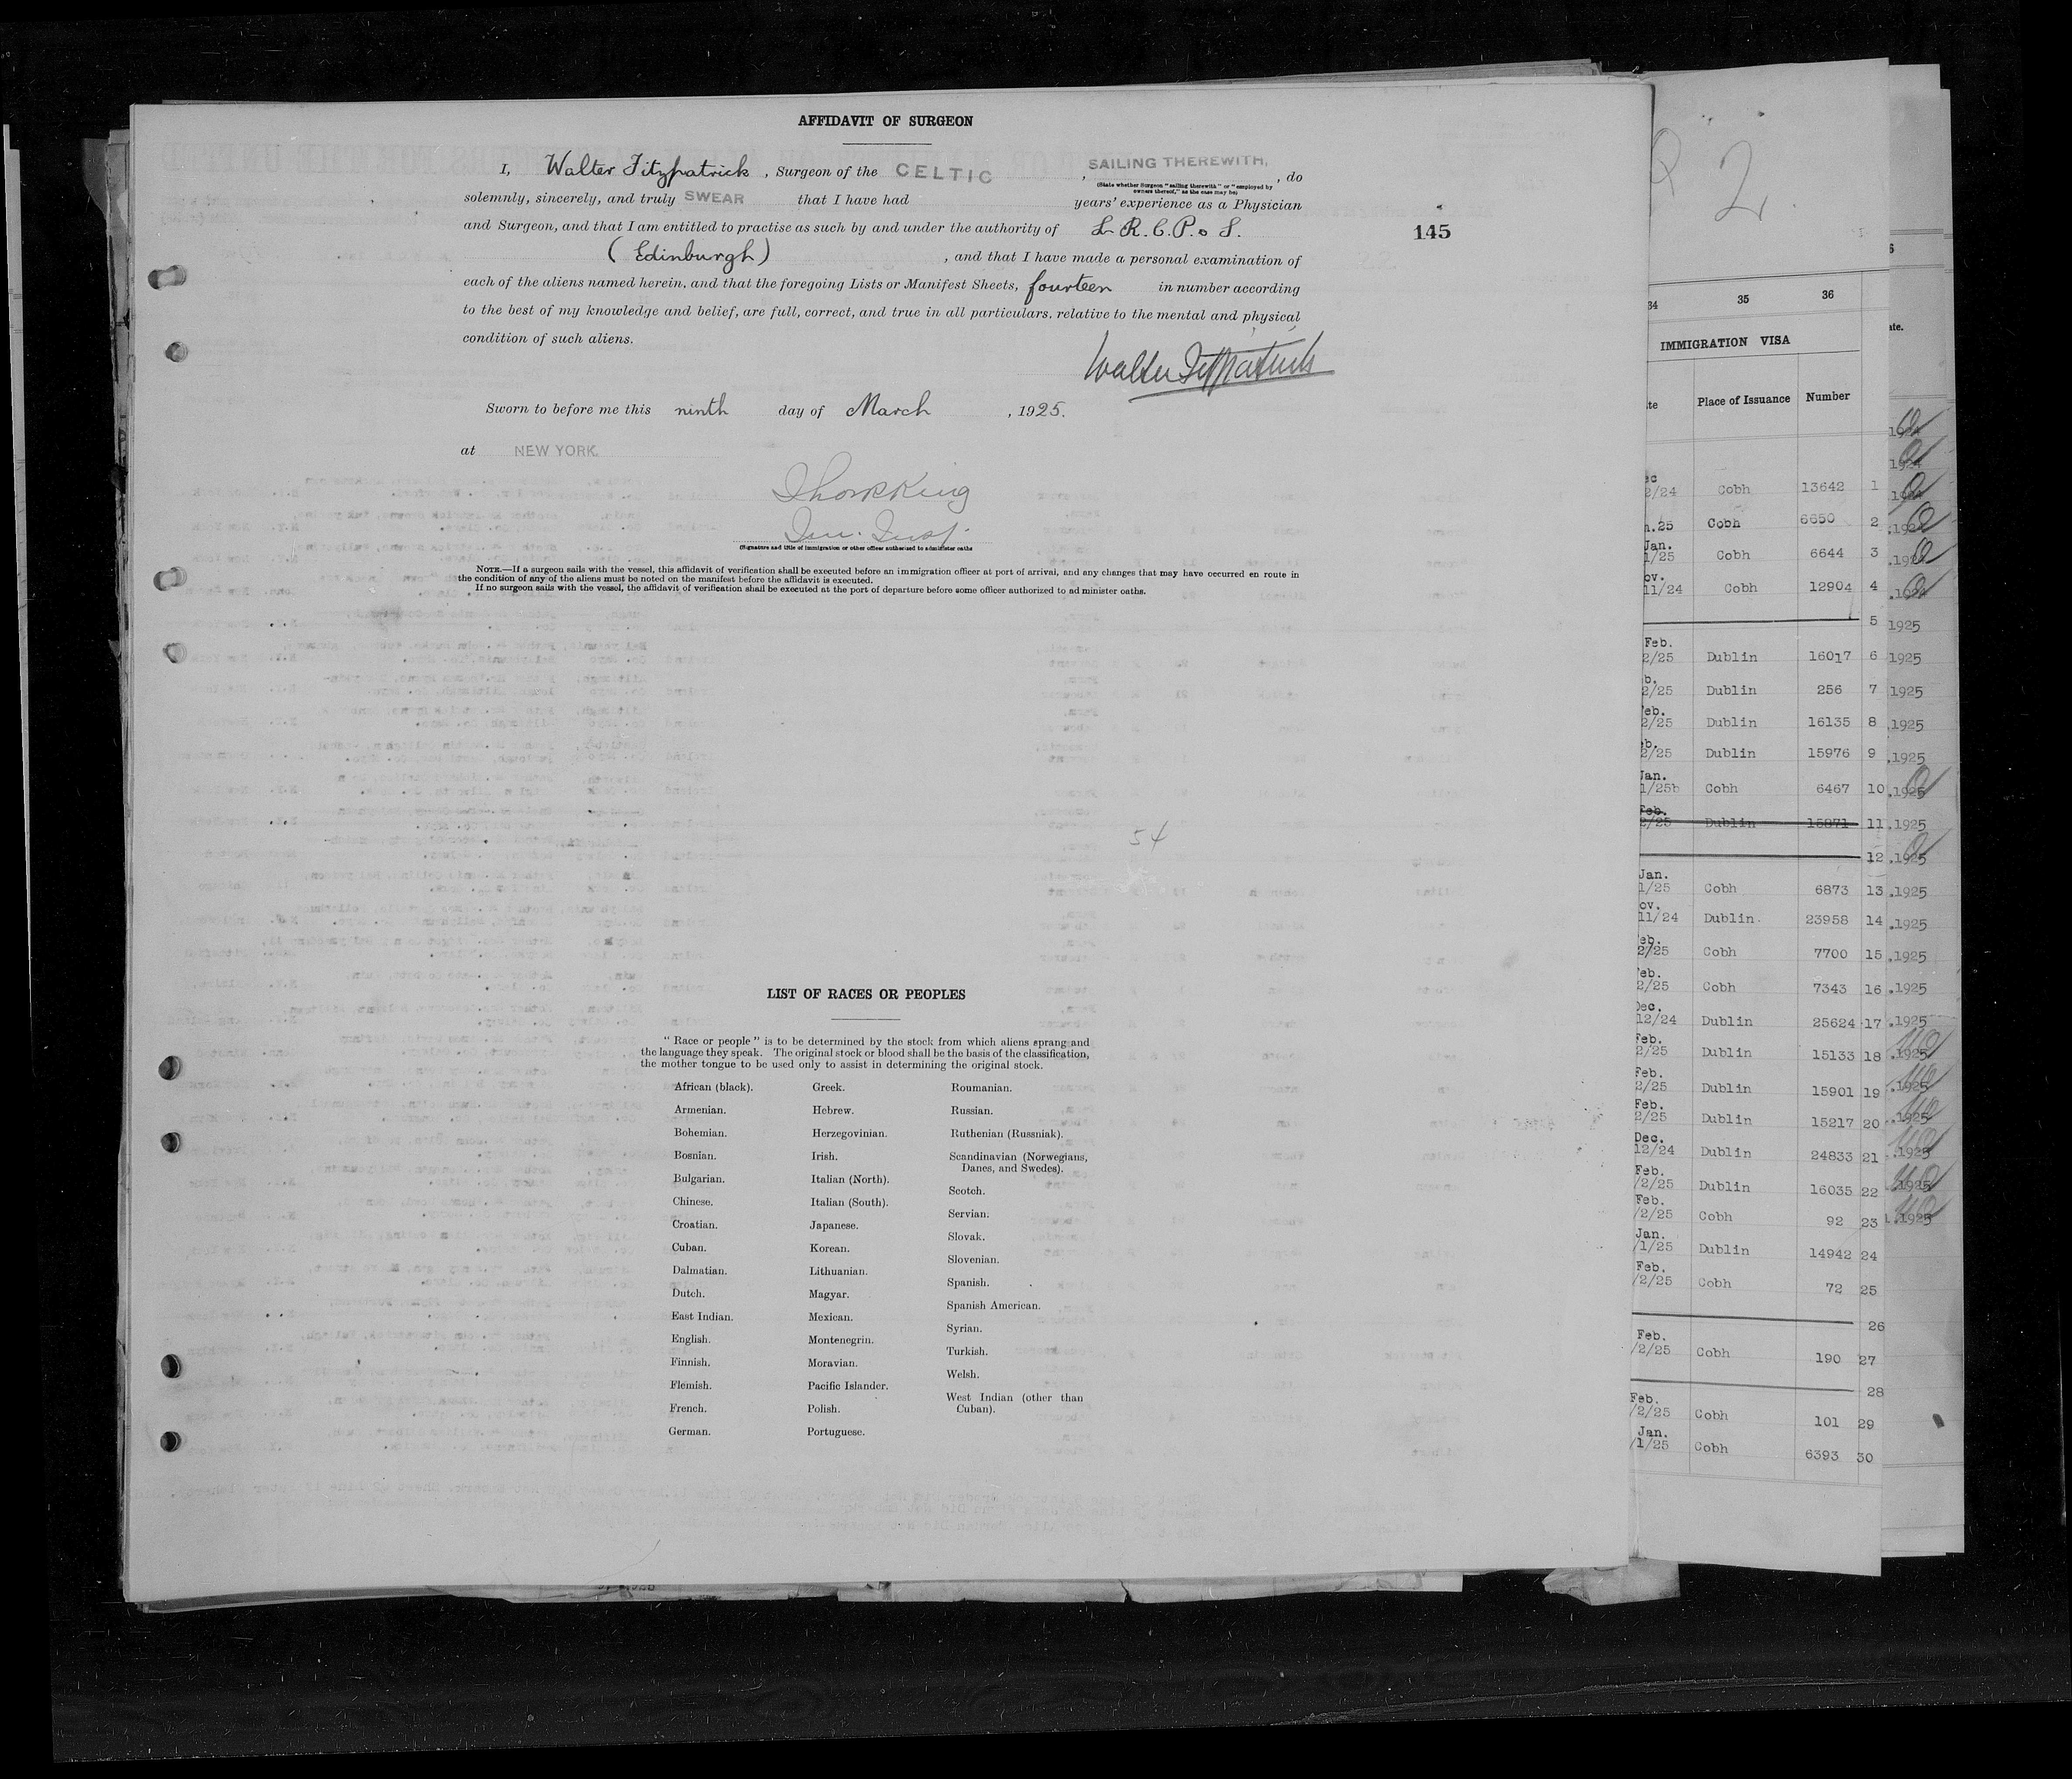 AFFIDAVIT OF SURGEON
I, Walter Fitzpatrick, Surgeon of the CELTIC, SAILING THEREWITH, do
(State whether Surgeon "sailing therewith" or "employed by
owners thereof," as the case may be)
solemnly, sincerely, and truly SWEAR that I have had years' experience as a Physician
and Surgeon, and that I am entitled to practise as such by and under the authority of L. R. C. P. & S.
145
(Edinburgh), and that I have made a personal examination of
each of the aliens named herein, and that the foregoing Lists or Manifest Sheets, fourteen in number according
to the best of my knowledge and belief, are full, correct, and true in all particulars, relative to the mental and physical
condition of such aliens.
Walter Fitzpatrick
Sworn to before me this ninth day of March, 1925.
at NEW YORK.
King
(Signature and title of immigration or other officer authorized to administer oaths
NOTE.—If a surgeon sails with the vessel, this affidavit of verification shall be executed before an immigration officer at port of arrival, and any changes that may have occurred en route in
the condition of any of the aliens must be noted on the manifest before the affidavit is executed.
If no surgeon sails with the vessel, the affidavit of verification shall be executed at the port of departure before some officer authorized to administer oaths.
54
LIST OF RACES OR PEOPLES
"Race or people" is to be determined by the stock from which aliens sprang and
the language they speak. The original stock or blood shall be the basis of the classification,
the mother tongue to be used only to assist in determining the original stock.
African (black).
Armenian.
Bohemian.
Bosnian.
Bulgarian.
Chinese.
Croatian.
Cuban.
Dalmatian.
Dutch.
East Indian.
English.
Finnish.
Flemish.
French.
German.
Greek.
Hebrew.
Herzegovinian.
Irish.
Italian (North).
Italian (South).
Japanese.
Korean.
Lithuanian.
Magyar.
Mexican.
Montenegrin.
Moravian.
Pacific Islander.
Polish.
Portuguese.
Roumanian.
Russian.
Ruthenian (Russniak).
Scandinavian (Norwegians,
Danes, and Swedes).
Scotch.
Servian.
Slovak.
Slovenian.
Spanish.
Spanish American.
Syrian.
Turkish.
Welsh.
West Indian (other than
Cuban).
2.
34 35 36
IMMIGRATION VISA
te Place of Issuance Number
ec
2/24 Cobh 13642 1
n.25 Cobh 6650 2
Jan.
1/25 Cobh 6644 3
ov.
11/24 Cobh 12904 4
5
Feb.
2/25 Dublin 16017 6
b.
2/25 Dublin 256 7
eb.
2/25 Dublin 16135 8
eb.
2/25 Dublin 15976 9
Jan.
1/25b Cobh 6467 10
Feb.
2/25 Dublin 15871 11
12
Jan.
1/25 Cobh 6873 13
ov.
11/24 Dublin. 23958 14
eb.
2/25 Cobh 7700 15
eb.
2/25 Cobh 7343 16
Dec.
12/24 Dublin 25624 17
Feb.
2/25 Dublin 15133 18
Feb.
2/25 Dublin 15901 19
Feb.
2/25 Dublin 15217 20
Dec.
12/24 Dublin 24833 21
Feb.
/2/25 Dublin 16035 22
Feb.
/2/25 Cobh 92 23
Jan.
/1/25 Dublin 14942 24
Feb.
/2/25 Cobh 72 25
26
Feb.
/2/25 Cobh 190 27
28
Feb.
/2/25 Cobh 101 29
Jan.
/1/25 Cobh 6393 30
ate.
1924
1924
1924
.1924
.1924
.1924
1925
1925
1925
.1925
.1925
.1925
.1925
.1925
.1925
.1925
.1925
.1925
.1925
.1925
.1925
.1925
.1925
.1925
.1925